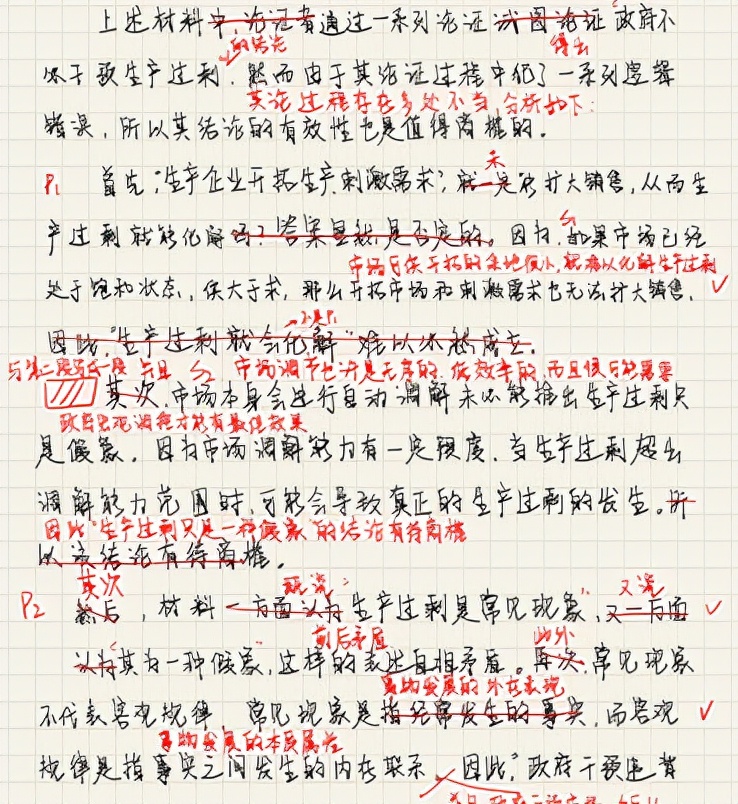 上述材料中,论证者通过一系列论证试图论证"政府不
的结论
得出
必干预生产过剩",然而由于其论证过程中犯了一系列逻辑
其论证过程存在多处不当,分析如下:
错误,所以其结论的有效性也是值得商榷的。
P1 首先,"生产企业开拓生产、刺激需求",就一定能扩大销售,从而生
未
产过剩就能化解吗?答案显然是否定的。因为,如果市场已经
市场可供开拓的余地很小,很难以化解生产过剩
处于饱和状态,供大于求,那么开拓市场和刺激需求也无法扩大销售,
因此,"生产过剩就会化解"难以必然成立。
市场调节也许是无序的、低效率的,而且很可能需要
其次,市场本身会进行自动调解未必能推出生产过剩只
政府宏观调控才能有最佳效果
是假象。因为市场调解能力有一定限度,当生产过剩超出
调解能力范围时,可能会导致真正的生产过剩的发生。所
因此"生产过剩只是一种假象"的结论有待商榷
以该结论有待商榷。
其次
既说
又说
P2 然后,材料一方面认为"生产过剩是常见现象",又一方面
前后矛盾
此外
认为其为"一种假象",这样的表述自相矛盾。再次,常见现象
事物发展的外在表现
不代表客观规律,常见现象是指经常发生的事实,而客观
事物发展的本质属性
规律是指事实之间发生的内在联系。因此,"政府干预违背